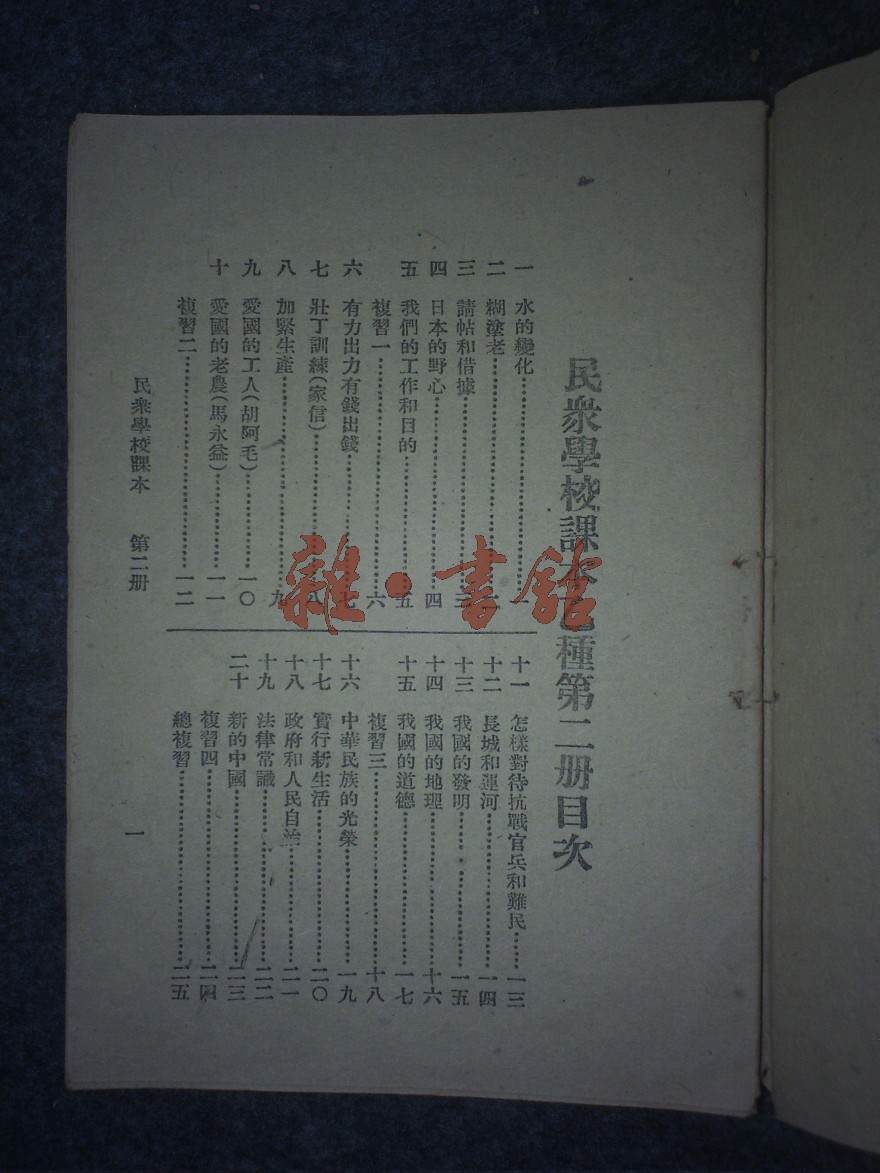 民衆學校課本乙種第二册目次
一 水的變化……一
二 糊塗老……二
三 請帖和借據……三
四 日本的野心……四
五 我們的工作和目的……五
複習一……六
六 有力出力有錢出錢……七
七 壯丁訓練(家信)……八
八 加緊生產……九
九 愛國的工人(胡阿毛)……一〇
十 愛國的老農(馬永益)……一一
複習二……一二
十一 怎樣對待抗戰官兵和難民……一三
十二 長城和運河……一四
十三 我國的發明……一五
十四 我國的地理……十六
十五 我國的道德……一七
複習三……十八
十六 中華民族的光榮……一九
十七 實行新生活……二〇
十八 政府和人民自治……二一
十九 法律常識……二二
二十 新的中國……二三
複習四……二四
總複習……二五
民衆學校課本 第二册
一
雜·書館